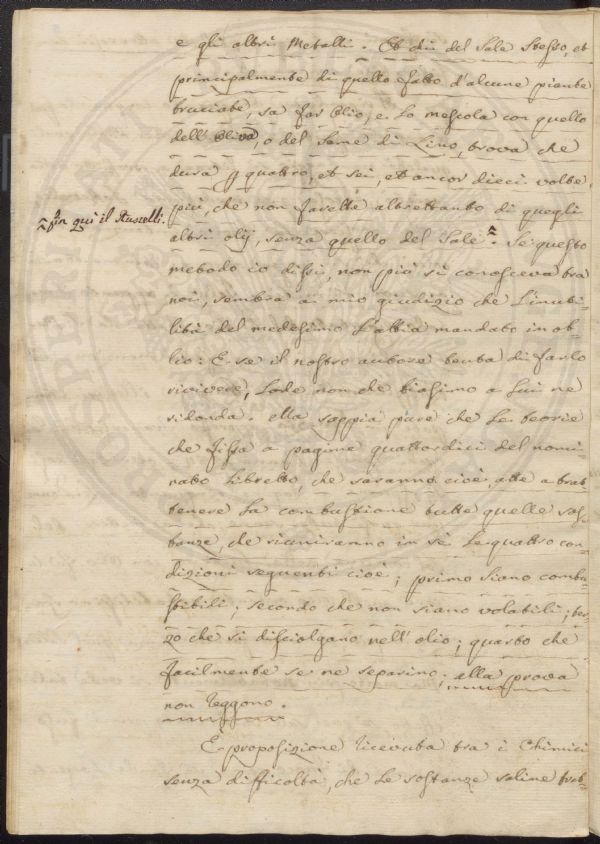 e gli altri Metalli. Et diu del Sale stesso, et
principalmente di quello fatto d'alcune piante
bruciate, sa far Olio, e lo mescola con quello
dell' Oliva, o del Seme di Lino, trova che
dura quattro, et sei, et ancor dieci volte
più, che non farebbe altrettanto di quegli
^ fin qui il Ruscelli.
altri olij, senza quello del Sale ^. Se questo
metodo io dissi, non più si conosceva tra
noi, sembra a mio giudizio che l'inuti-
lità del medesimo l'abbia mandato in ob-
lio: E se il nostro autore tenta di farlo
rivivere, Lode non che biasimo a lui ne
ridonda. Ma sappia pure che le teorie
che fissa a pagine quattordici del nomi-
nato Libretto, che saranno cioè atte a trat-
tenere la combustione tutte quelle sos-
tanze, che riuniranno in sè le quattro con-
dizioni seguenti cioè; primo siano combu-
stibili; secondo che non siano volatili; ter-
zo che si disciolgano nell' olio; quarto che
facilmente se ne separino; alla prova
non reggono.
È proposizione ricevuta tra i Chimici
senza difficoltà, che le sostanze saline